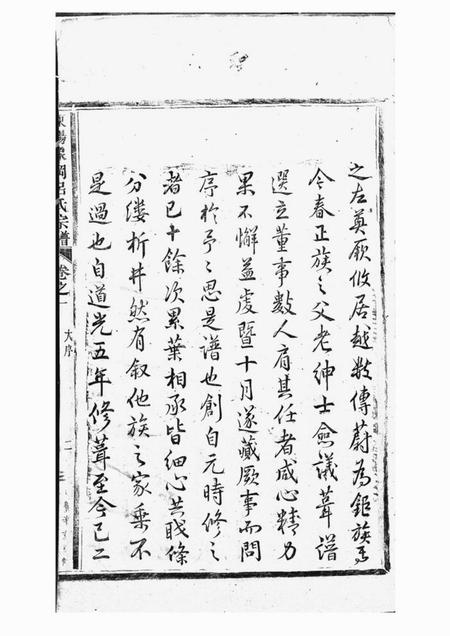 之左奠厥攸居越數傳蔚為鉅族焉
今春正族之父老紳士僉議葺譜
選立董事數人肩其任者咸心精力
果不懈益虔暨十月遂蕆厥事而問
序於予予思是譜也創自元時修之
者已十餘次累葉相承皆細心共戝條
分缕析井然有叙他族之家乘不
是過也自道光五年修葺至今已二
東陽 岡呂氏宗譜
卷之一
大序
二